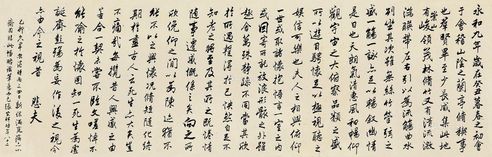 永和九年歲在癸丑暮春之初會
于會稽山陰之蘭亭脩稧事
也群賢畢至少長咸集此地
有崇山峻領茂林脩竹又有清流激
湍暎帶左右引以為流觴曲水
列坐其次雖無絲竹管弦之
盛一觴一詠亦足以暢敘幽情
是日也天朗氣清惠風和暢仰
觀宇宙之大俯察品類之盛
所以遊目騁懷足以極視聽之
娛信可樂也夫人之相與俯仰
一世或取諸懷抱悟言一室之內
或因寄所託放浪形骸之外雖
趣舍萬殊靜躁不同當其欣
於所遇暫得於己快然自足不
知老之將至及其所之既惓情
隨事遷感慨係之矣向之所
欣俛仰之間以為陳迹猶不
能不以之興懷況脩短隨化終
期於盡古人云死生亦大矣豈
不痛哉每攬昔人興感之由
若合一契未嘗不臨文嗟悼不
能喻之於懷固知一死生為虛
誕齊彭殤為妄作後之視今
亦由今之視昔
悲夫